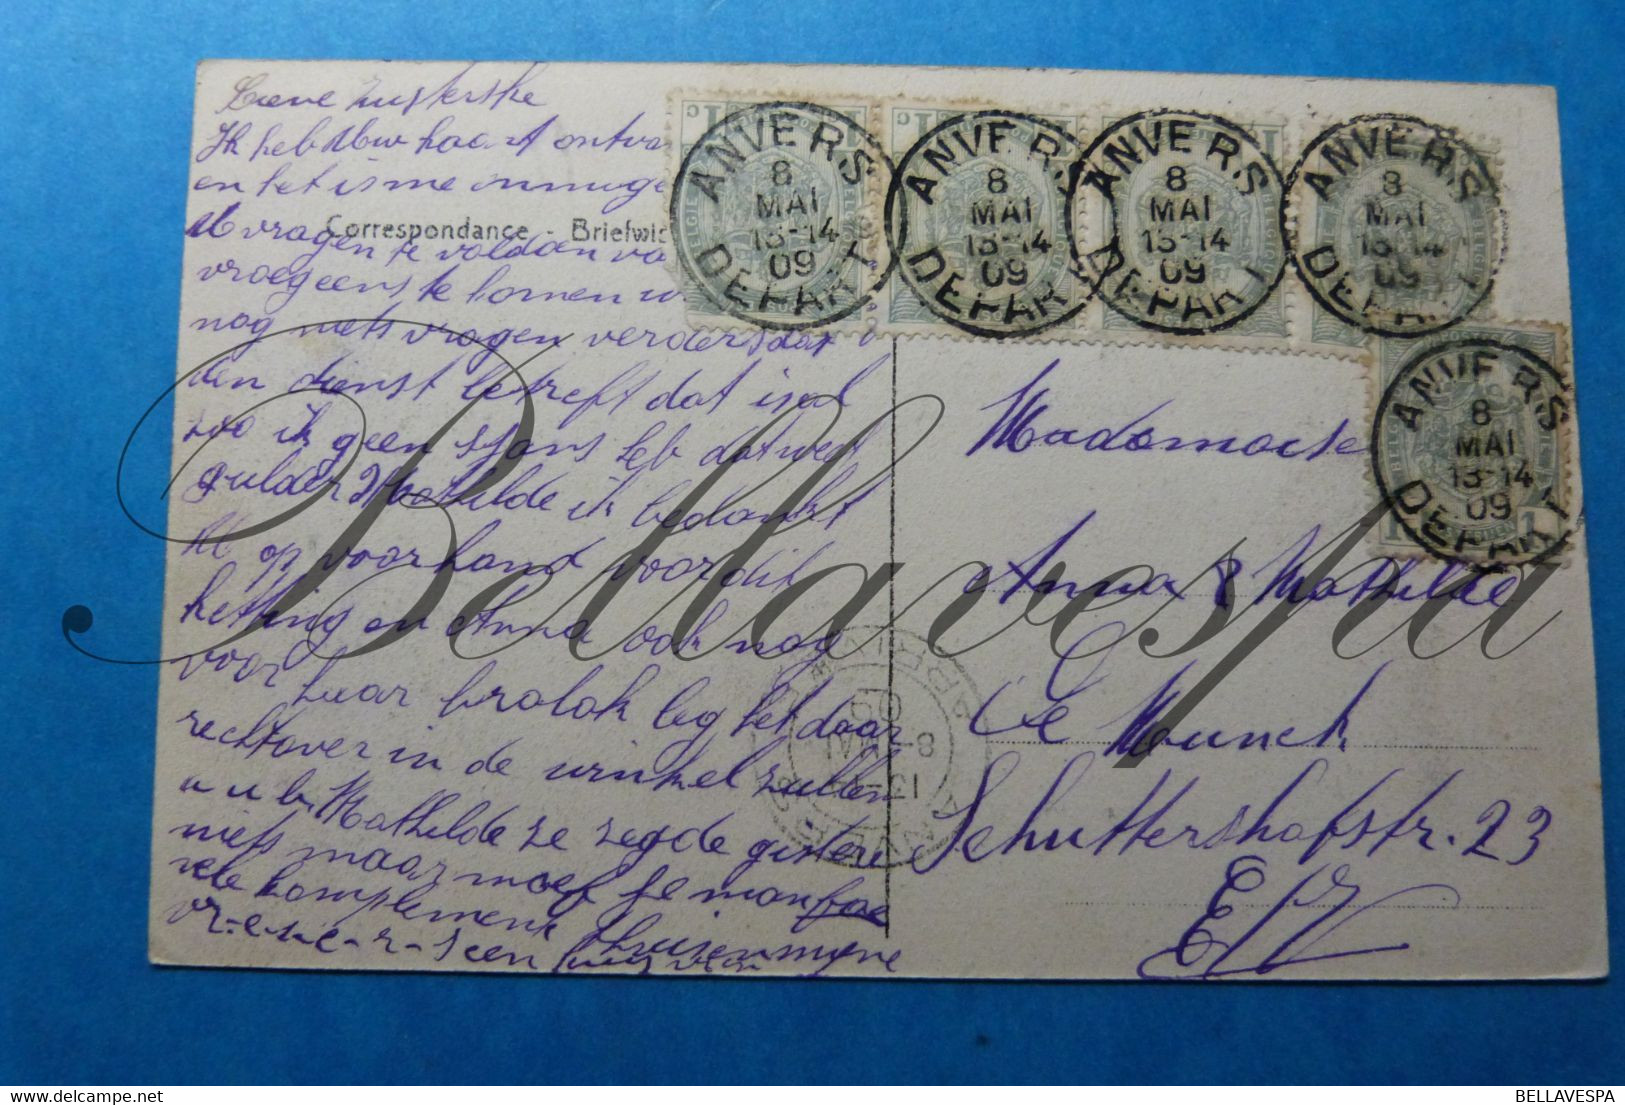 Lieve zusterske
Ik heb Uw kaart ontva
en het is me onmoge
Correspondance - Briefwis
U vragen te voldoen
vroegeens te komen
nog niets vragen verders dat
den dienst betreft dat is al
zoo ik geen sjans heb dat weet
gulder Mathilde ik bedankt
U op voorhand voor dit
ketting en Anna ook nog
voor haar brolok leg het daar
rechtover in de winkel zullen
Mathilde ze zegde gister
niets maar moest je man
vele komplementen thuis en mijne
vr-e-s-e-r-s een
1c 1c
ANVERS
8
MAI
13-14
09
DEPART
ANVERS
8
MAI
13-14
09
DEPART
ANVERS
8
MAI
13-14
09
DEPART
ANVERS
8
MAI
13-14
09
DEPART
ANVERS
8
MAI
13-14
09
DEPART
Mademoise
Anna & Mathilde
De Munck
Schuttershofstr. 23
E/V
Bellavespa
BELLAVESPA